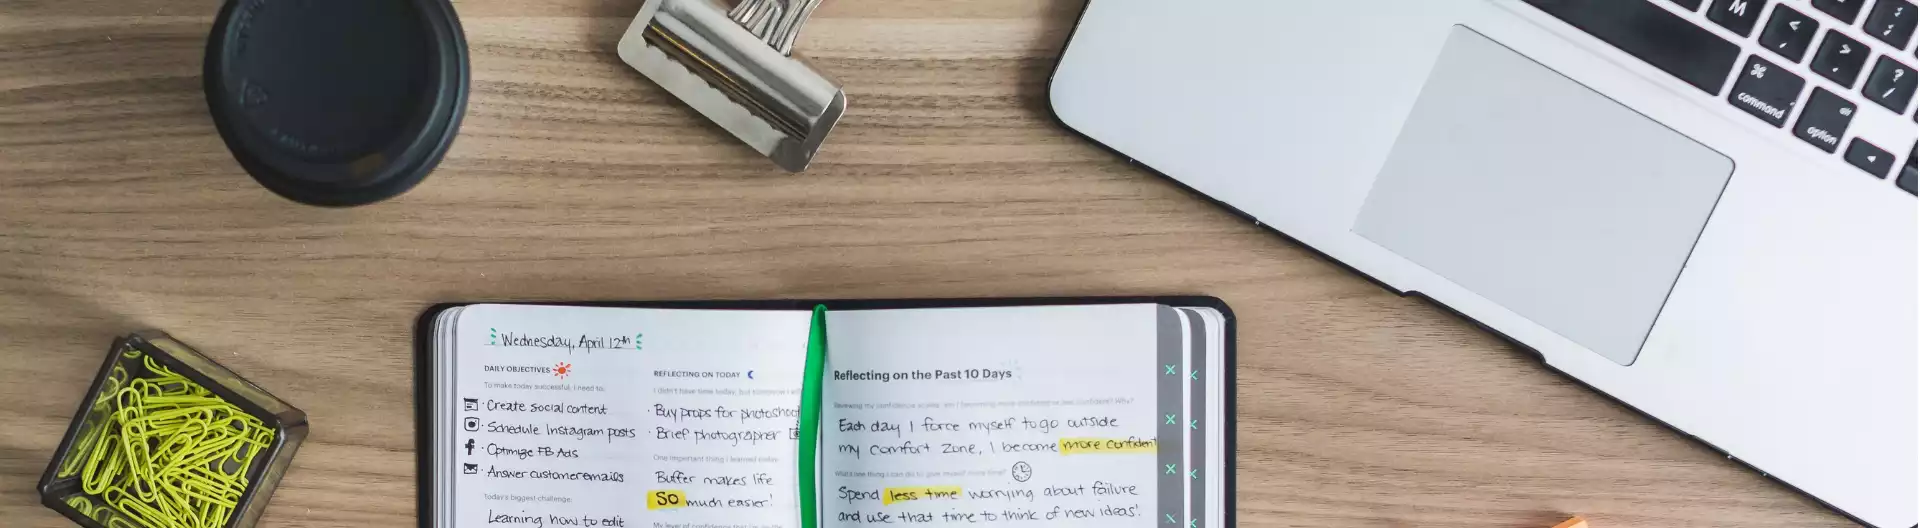 M
<
>
?
/
⌘
command
alt
option
Wednesday, April 12th
DAILY OBJECTIVES
To make today successful, I need to:
· Create social content
· Schedule Instagram posts
· Optimize FB Ads
· Answer customer emails
Today's biggest challenge:
Learning how to edit
REFLECTING ON TODAY
I didn't have time today, but tomorrow I will
· Buy props for photoshoot
· Brief photographer
One important thing I learned today:
Buffer makes life
SO much easier!
My level of confidence
Reflecting on the Past 10 Days
Reviewing my confidence scores, am I becoming more confident or less confident? Why?
Each day I force myself to go outside
my comfort zone, I become more confident
What's one thing I can do to give myself more time?
Spend less time worrying about failure
and use that time to think of new ideas!